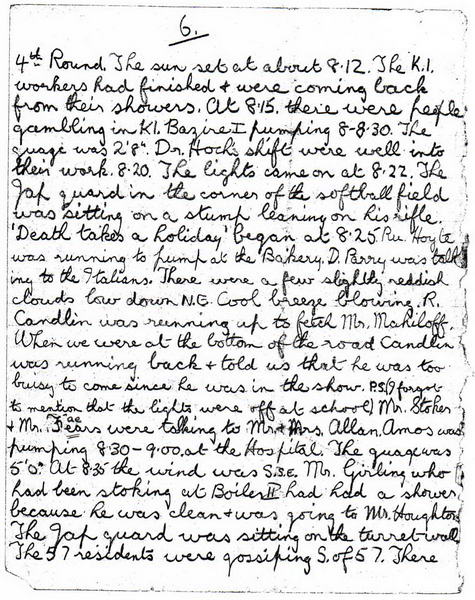 6.
4th Round. The sun set at about 8.12. The K.1.
workers had finished & were coming back
from their showers. At 8.15. there were people
gambling in K1. Bazire I pumping 8-8.30. The
guage was 2'8". Dr. Hoch's shift were well into
their work. 8.20. The lights came on at 8.22. The
Jap guard in the corner of the softball field
was sitting on a stump leaning on his rifle.
'Death takes a holiday' began at 8.25 Hoyte
was running to pump at the Bakery. D. Perry was talk
ing to the Italians. There were a few slightly reddish
clouds low down N.E. Cool breeze blowing. R.
Candlin was running up to fetch Mr. Mahiloff.
When we were at the bottom of the road Candlin
was running back & told us that he was too
buisy to come since he was in the show. P.S (I forgot
to mention that the lights were off at school) Mr. Stoker
& Mr. Fears were talking to Mr. & Mrs. Allan. Amos was
pumping 8.30-9.00. at the Hospital. The guage was
5'0". At 8.35 the wind was S.S.E. Mr. Girling who
had been stoking at Boiler II had had a shower
because he was clean & was going to Mr. Houghton
The Jap guard was sitting on the turret wall
The 57 residents were gossiping S. of 57. There